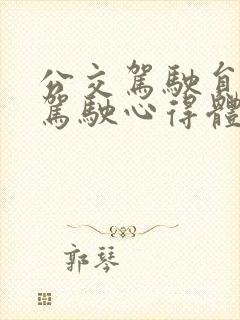 公交驾駛自
駕駛心得體
郭琴